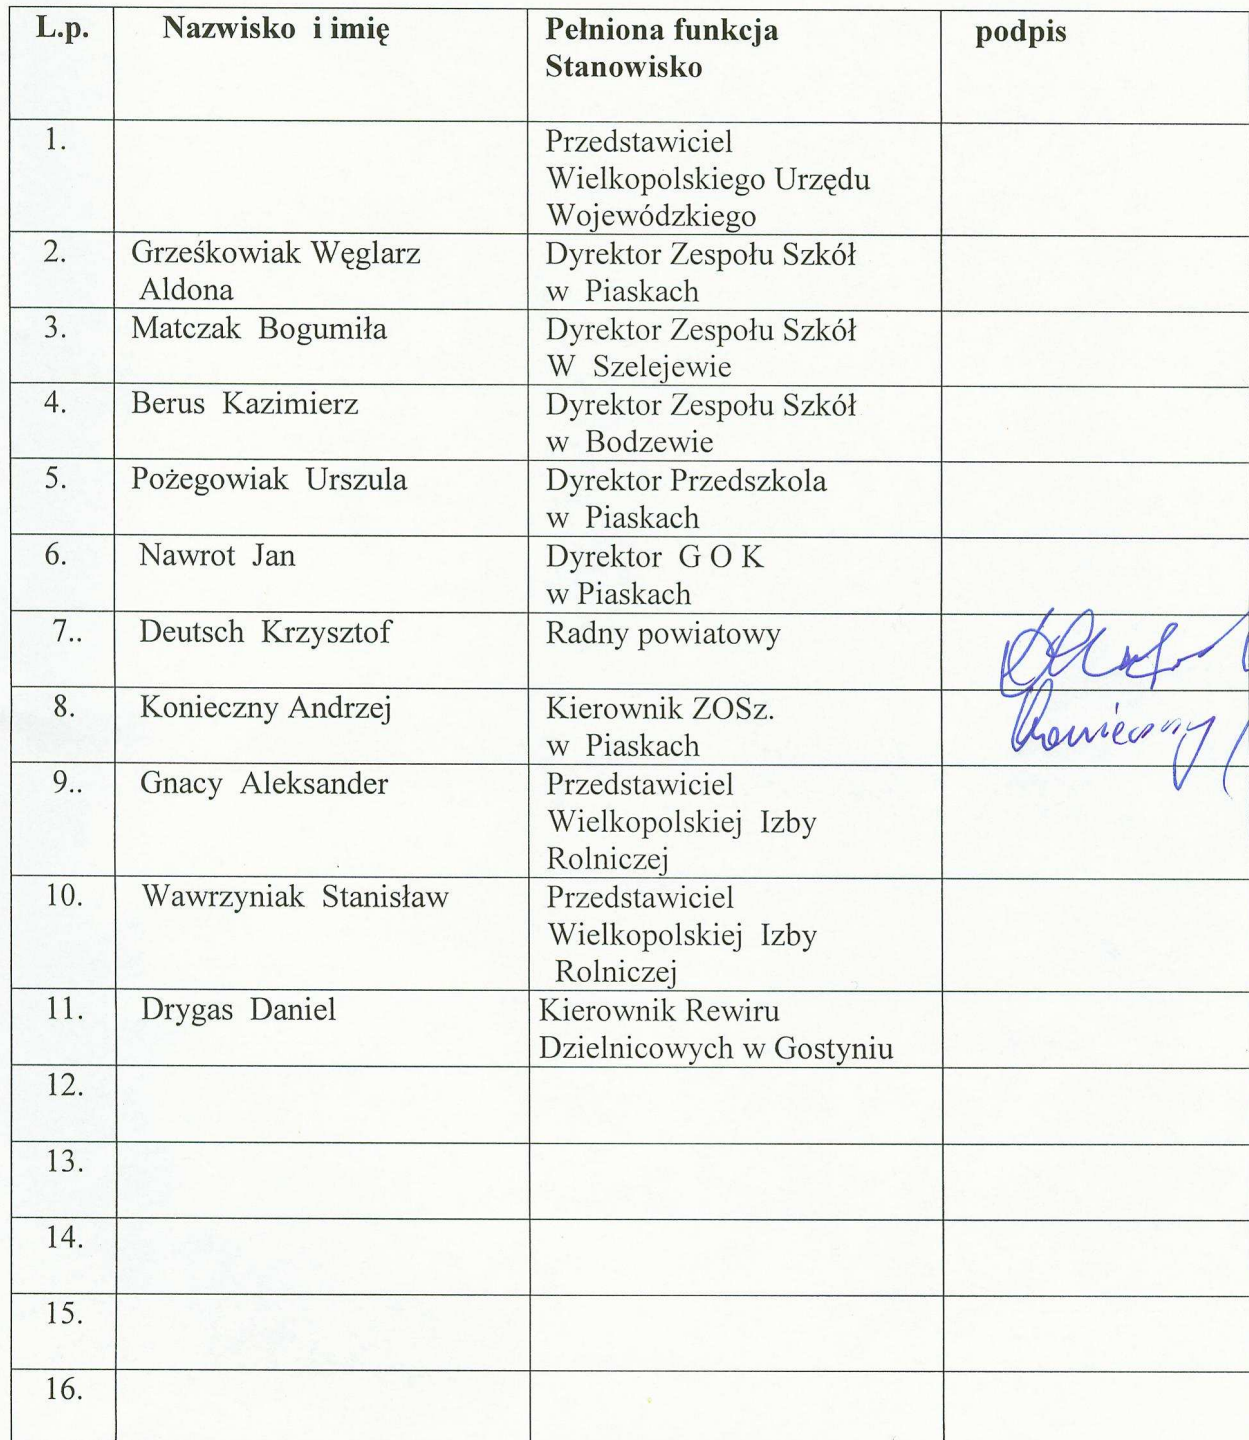 L.p. Nazwisko i imię Pełniona funkcja podpis
Stanowisko
1. Przedstawiciel
Wielkopolskiego Urzędu
Wojewódzkiego
2. Grześkowiak Węglarz Dyrektor Zespołu Szkół
Aldona w Piaskach
3. Matczak Bogumiła Dyrektor Zespołu Szkół
W Szelejewie
4. Berus Kazimierz Dyrektor Zespołu Szkół
w Bodzewie
5. Pożegowiak Urszula Dyrektor Przedszkola
w Piaskach
6. Nawrot Jan Dyrektor G O K
w Piaskach
7.. Deutsch Krzysztof Radny powiatowy
8. Konieczny Andrzej Kierownik ZOSz. Konieczny
w Piaskach
9.. Gnacy Aleksander Przedstawiciel
Wielkopolskiej Izby
Rolniczej
10. Wawrzyniak Stanisław Przedstawiciel
Wielkopolskiej Izby
Rolniczej
11. Drygas Daniel Kierownik Rewiru
Dzielnicowych w Gostyniu
12.
13.
14.
15.
16.